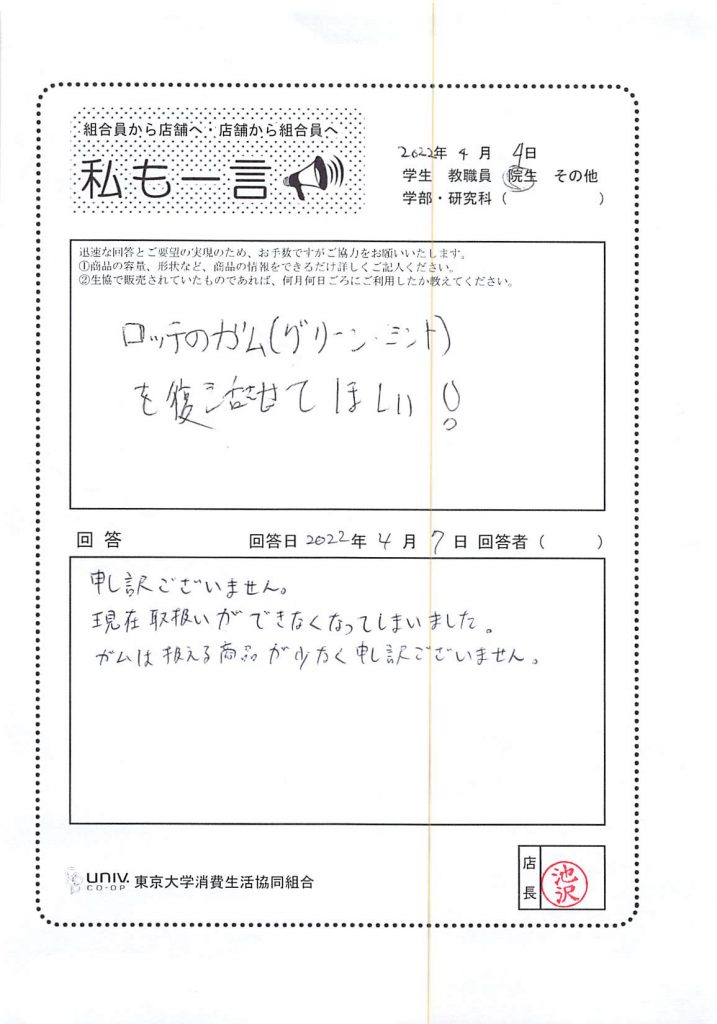 組合員から店舗へ・店舗から組合員へ
私も一言
2022年 4 月 4日
学生 教職員 院生 その他
学部・研究科（ ）
迅速な回答とご要望の実現のため、お手数ですがご協力をお願いいたします。
①商品の容量、形状など、商品の情報をできるだけ詳しくご記入ください。
②生協で販売されていたものであれば、何月何日ごろにご利用したか教えてください。
ロッテのガム(グリーン・ミント)
を復活させてほしい！
回 答 回答日 2022 年 4 月 7 日 回答者（ ）
申し訳ございません。
現在取扱いができなくなってしまいました。
ガムは扱える商品が少なく申し訳ございません。
UNIV. CO-OP 東京大学消費生活協同組合
店長 池沢